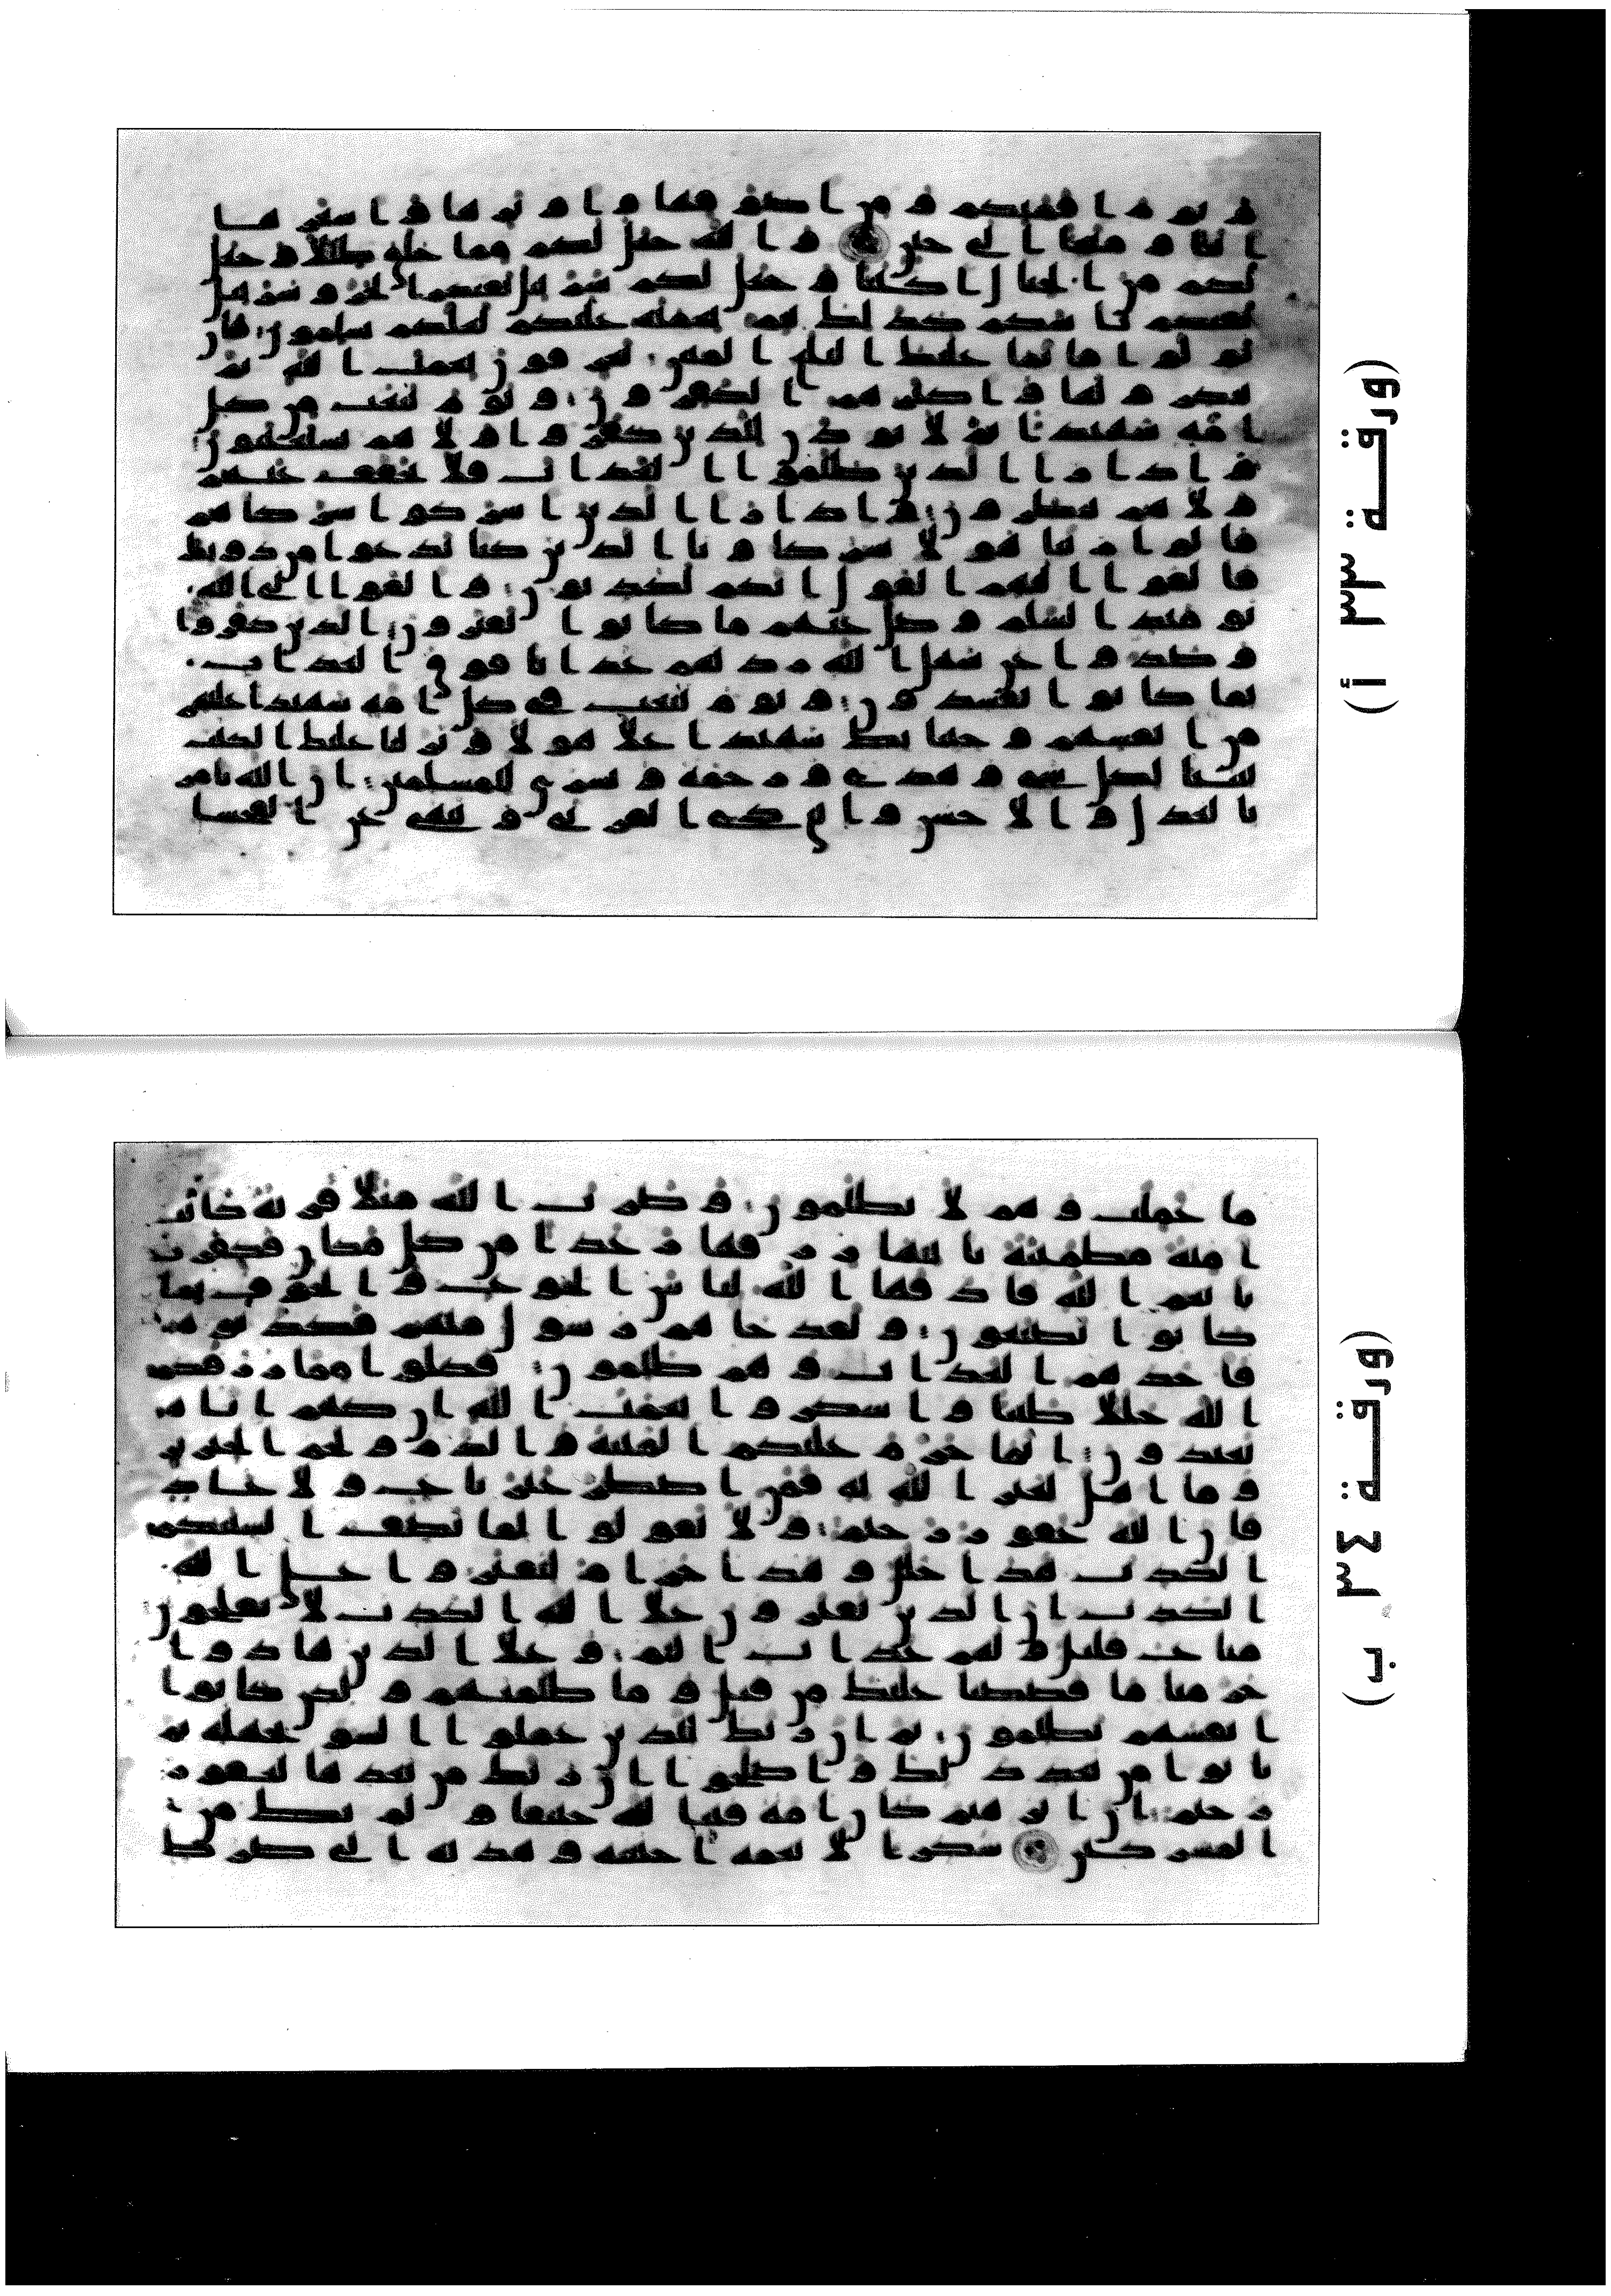 و يوم اقمتكم و من اصوفها و اوبرها و اشعرها
اثثا و متعا الى حين و الله جعل لكم مما خلق ظللا و جعل
لكم من الجبال اكننا و جعل لكم سربيل تقيكم الحر و سربيل
تقيكم باسكم كذلك يتم نعمته عليكم لعلكم تسلمون فان
تولوا فانما عليك البلغ المبين يعرفون نعمت الله ثم
ينكرونها و اكثرهم الكفرون و يوم نبعث من كل
امة شهيدا ثم لا يوذن للذين كفروا و لا هم يستعتبون
و اذا را الذين ظلموا العذاب فلا يخفف عنهم
و لا هم ينظرون و اذا را الذين اشركوا شركاهم
قالوا ربنا هولا شركاونا الذين كنا ندعوا من دونك
فالقوا اليهم القول انكم لكذبون و القوا الى الله
يومئذ السلم و ضل عنهم ما كانوا يفترون الذين كفروا
و صدوا عن سبيل الله زدنهم عذابا فوق العذاب
بما كانوا يفسدون و يوم نبعث في كل امة شهيدا عليهم
من انفسهم و جينا بك شهيدا على هولا و نزلنا عليك الكتب
تبينا لكل شي و هدى و رحمة و بشرى للمسلمين ان الله يامر
بالعدل و الاحسن و ايتاى ذي القربى و ينهى عن الفحشا
(ورقة ٣٣ أ)
ما عملت و هم لا يظلمون و ضرب الله مثلا قرية كانت
امنة مطمئنة ياتيها رزقها رغدا من كل مكان فكفرت
بانعم الله فاذقها الله لباس الجوع و الخوف بما
كانوا يصنعون و لقد جاهم رسول منهم فكذبوه
فاخذهم العذاب و هم ظلمون فكلوا مما رزقكم
الله حللا طيبا و اشكروا نعمت الله ان كنتم اياه
تعبدون انما حرم عليكم الميتة و الدم و لحم الخنزير
و ما اهل لغير الله به فمن اضطر غير باغ و لا عاد
فان الله غفور رحيم و لا تقولوا لما تصف السنتكم
الكذب هذا حلل و هذا حرام لتفتروا على الله
الكذب ان الذين يفترون على الله الكذب لا يفلحون
متاع قليل و لهم عذاب اليم و على الذين هادوا
حرمنا ما قصصنا عليك من قبل و ما ظلمنهم و لكن كانوا
انفسهم يظلمون ثم ان ربك للذين عملوا السو بجهلة ثم
تابوا من بعد ذلك و اصلحوا ان ربك من بعدها لغفور
رحيم ان ابرهيم كان امة قنتا لله حنيفا و لم يك من
المشركين شكرا لانعمه اجتبه و هديه الى صرط
(ورقة ٣٤ ب)